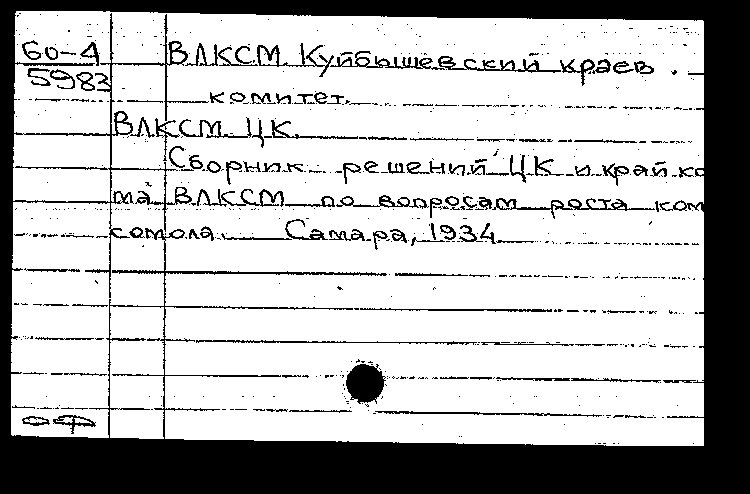 60-4 ВЛКСМ. Куйбышевский краев.
5983
комитет.
ВЛКСМ. ЦК.
Сборник решений ЦК и край ко
ма ВЛКСМ по вопросам роста ком
сомола. Самара, 1934